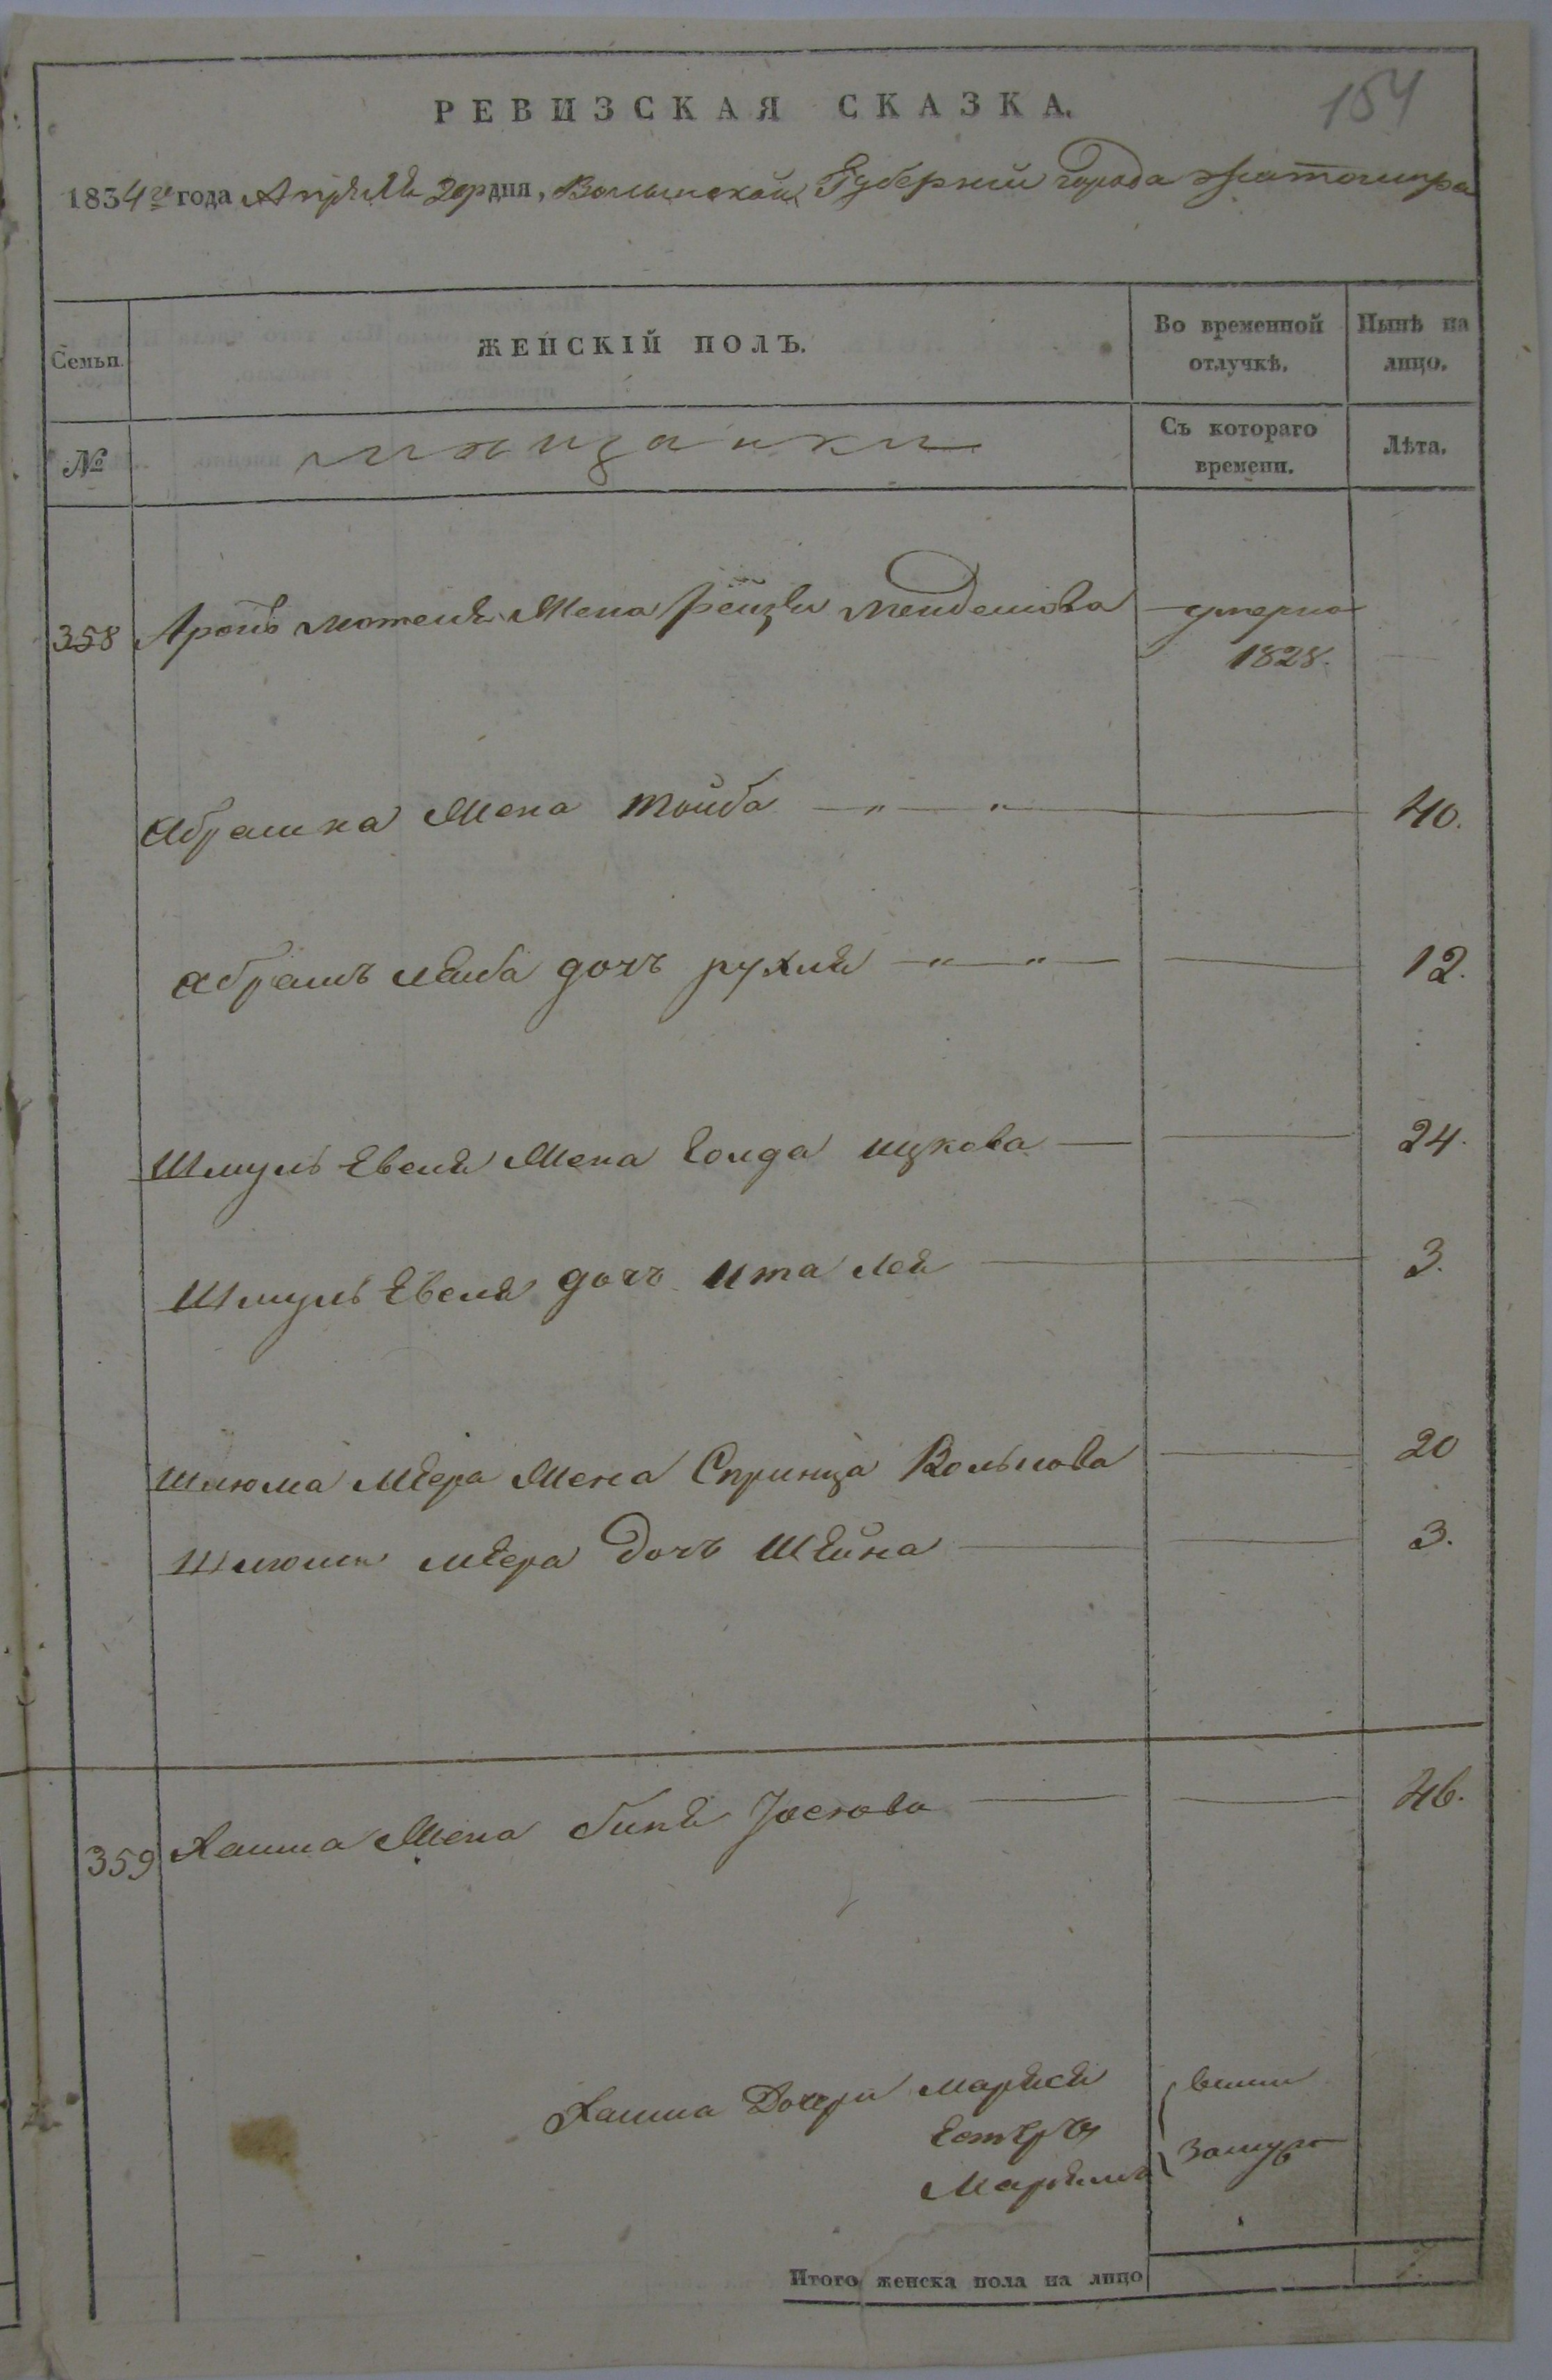 154
РЕВИЗСКАЯ СКАЗКА.
1834го года Апреля 20го дня, Волынской Губернии города Житомира
Семьи. ЖЕНСКІЙ ПОЛЪ. Во временной отлучкѣ. Нынѣ на лицо.
№ мещанки Съ котораго времени. Лѣта.
358 Аронъ Мотеля Жена Рейзя Менделиова умерла
1828.
Абрашка Жена Тойба — „ — „ — 40.
Абрамъ Лейба дочь Рухля — „ — „ — 12.
Шмуль Евеля Жена Голда Ицкова — 24.
Шмуль Евеля дочь Ита Лея — 3.
Шлюма Меера Жена Сприица Вольхова — 20
Шлюма Меера дочь Шейна — 3.
359 Хаима Жена Биня Јоскова — 46.
Хаима Дочери Маряся вышли
Естера
Маріемъ замужъ
Итого женска пола на лицо 7.